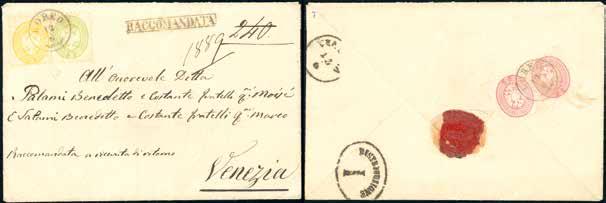 LOREO
12
RACCOMANDATA
240.
1889
All' Onorevole Ditta
Palami Benedetto e Costante fratelli q.m Moisé
e Salami Benedetto e Costante fratelli q.m Marco
Raccomandata a ricevuta di ritorno
Venezia
12
LOREO
DISTRIBUZIONE
I